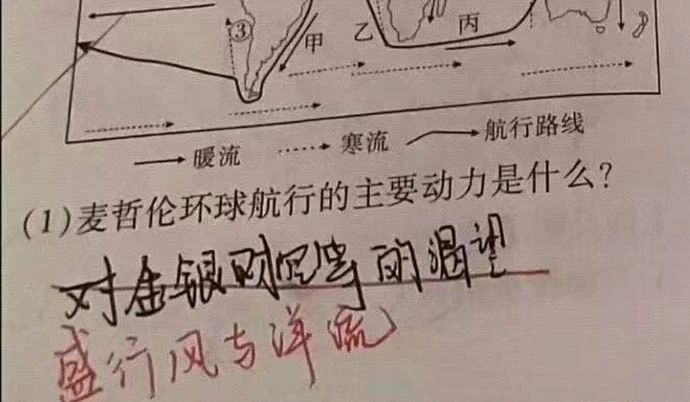 ③
甲
乙
丙
暖流
寒流
航行路线
(1)麦哲伦环球航行的主要动力是什么?
对金银财宝等的渴望
盛行风与洋流